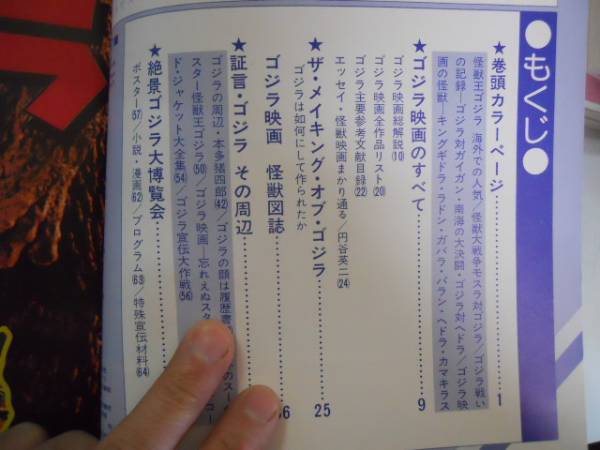 ●もくじ●
★巻頭カラーページ………1
怪獣王ゴジラ 海外での人気/怪獣大戦争モスラ対ゴジラ/ゴジラ戦い
の記録―ゴジラ対ガイガン・南海の大決闘・ゴジラ対ヘドラ/ゴジラ映
画の怪獣―キングギドラ・ラドン・ガバラ・バラン・ヘドラ・カマキラス
★ゴジラ映画のすべて………9
ゴジラ映画総解説(10)
ゴジラ映画全作品リスト(20)
ゴジラ主要参考文献目録(22)
エッセイ・怪獣映画まかり通る/円谷英二(24)
★ザ・メイキング・オブ・ゴジラ………25
ゴジラは如何にして作られたか
ゴジラ映画 怪獣図誌………6
★証言・ゴジラ その周辺
ゴジラの周辺・本多猪四郎(42)/ゴジラの顔は履歴書
のスー
スター怪獣王ゴジラ(50)/ゴジラ映画―忘れえぬスタ
コー
ド・ジャケット大全集(54)/ゴジラ宣伝大作戦(56)
★絶景ゴジラ大博覧会………
ポスター(57)/小説・漫画(62)/プログラム(63)/特殊宣伝材料(64)